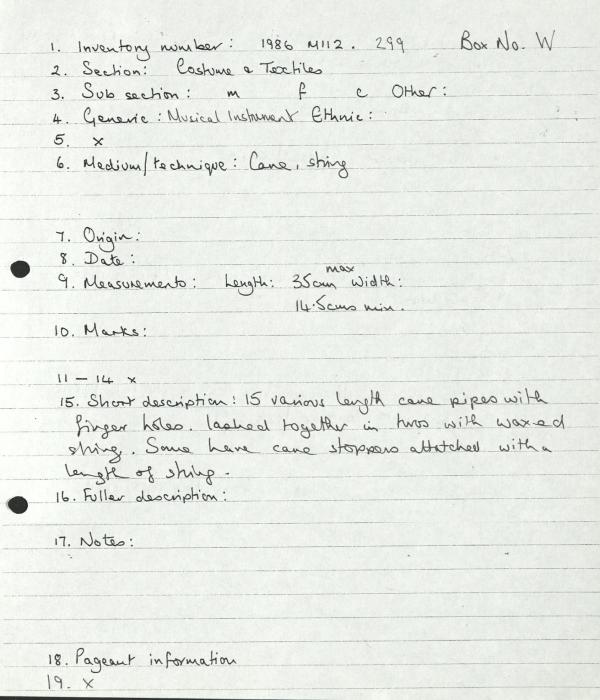 1. Inventory number: 1986 M112. 299 Box No. W
2. Section: Costume & Textiles
3. Sub section: m f c Other:
4. Generic: Musical Instrument Ethnic:
5. x
6. Medium/technique: Cane, string
7. Origin:
8. Date:
9. Measurements: Length: 35cm max Width:
14.5cms min.
10. Marks:
11 – 14 x
15. Short description: 15 various length cane pipes with
finger holes. lashed together in twos with waxed
string. Some have cane stoppers attatched with a
length of string.
16. Fuller description:
17. Notes:
18. Pageant information
19. x